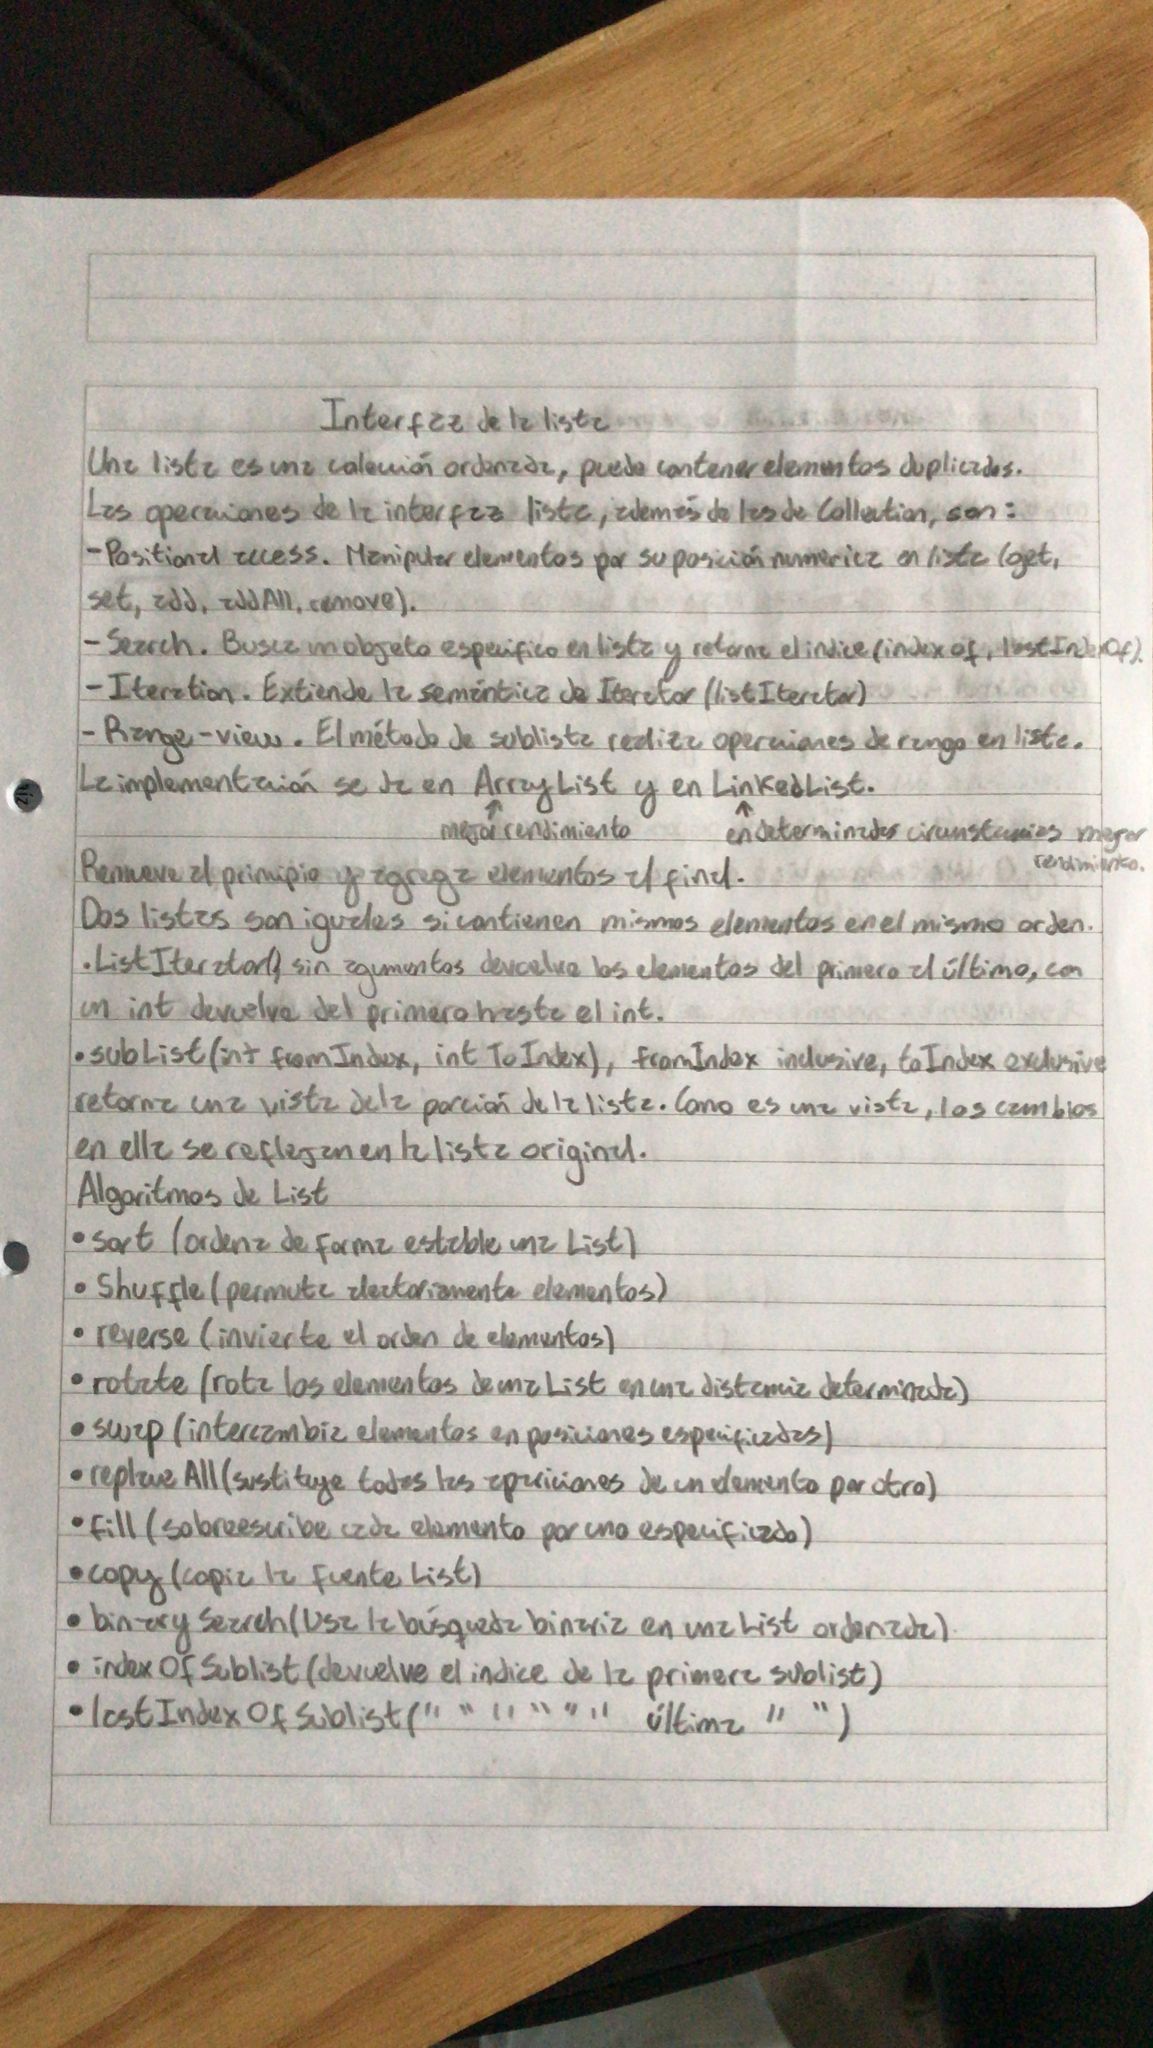 Interfaz de la lista
Una lista es una colección ordenada, puede contener elementos duplicados.
Las operaciones de la interfaz lista, además de las de Collection, son:
-Positional access. Manipular elementos por su posición numerica en lista (get,
set, add, addAll, remove).
- Search. Busca un objeto especifico en lista y retorna el indice (index of, lastIndexOf).
- Iteration. Extiende la semántica de Iterator (listIterator)
- Range-view. El método de sublista realiza operaciones de rango en lista.
La implementación se da en ArrayList y en LinkedList.
mejor rendimiento en determinadas circunstancias mejor
rendimiento.
Remueve al principio y agrega elementos al final.
Dos listas son iguales si contienen mismos elementos en el mismo orden.
.ListIterator() sin agumentos devuelve los elementos del primero al último, con
un int devuelve del primero hasta el int.
•subList(int fromIndex, int ToIndex), fromIndex inclusive, toIndex exclusive
retorna una vista de la porción de la lista. Como es una vista, los cambios
en ella se reflejan en la lista original.
Algoritmos de List
• sort (ordena de forma estable una List)
• Shuffle (permuta aleatoriamente elementos)
• reverse (invierte el orden de elementos)
• rotate (rota los elementos de una List en una distancia determinada)
• swap (intercambia elementos en posiciones especificadas)
• replace All (sustituye todas las apariciones de un elemento por otro)
• fill (sobreescribe cada elemento por uno especificado)
• copy (copia la fuente List)
• binary Search (Usa la búsqueda binaria en una List ordenada)
• index Of Sublist (devuelve el indice de la primera sublist)
• last Index Of Sublist (" " " " " " última " ")